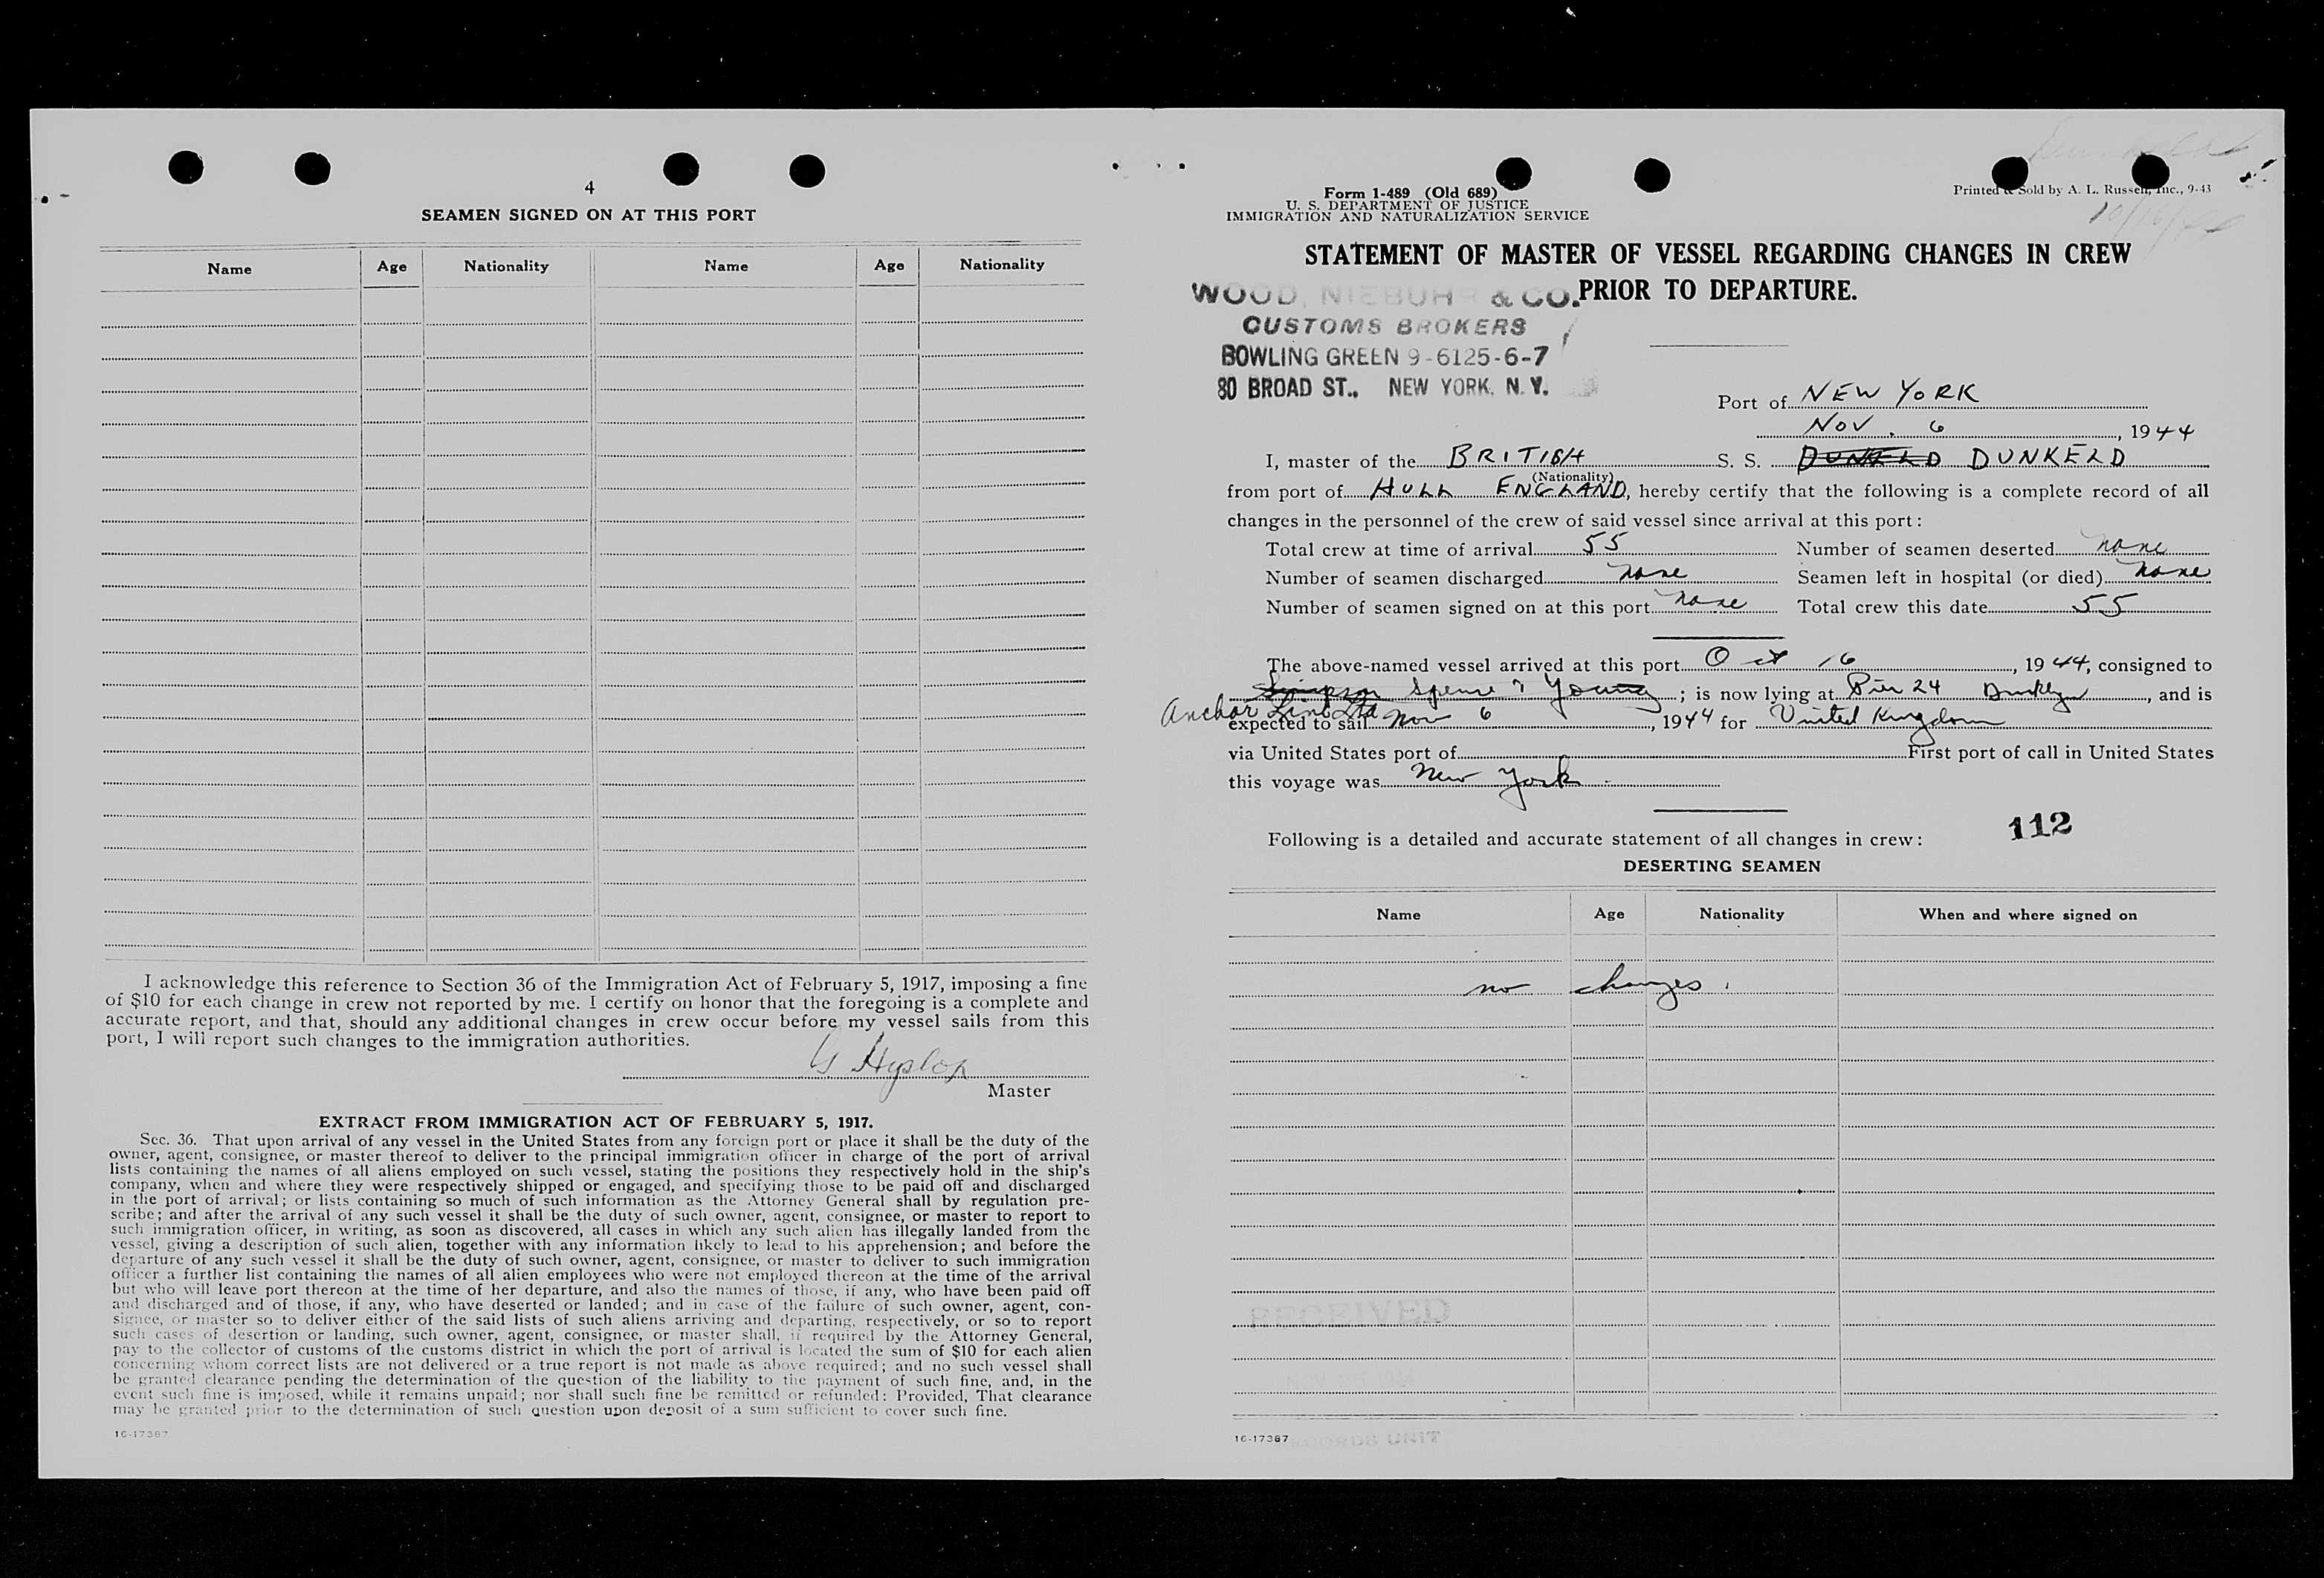 4
SEAMEN SIGNED ON AT THIS PORT
Name Age Nationality Name Age Nationality
I acknowledge this reference to Section 36 of the Immigration Act of February 5, 1917, imposing a fine
of $10 for each change in crew not reported by me. I certify on honor that the foregoing is a complete and
accurate report, and that, should any additional changes in crew occur before my vessel sails from this
port, I will report such changes to the immigration authorities.
G Hyslop
Master
EXTRACT FROM IMMIGRATION ACT OF FEBRUARY 5, 1917.
Sec. 36. That upon arrival of any vessel in the United States from any foreign port or place it shall be the duty of the
owner, agent, consignee, or master thereof to deliver to the principal immigration officer in charge of the port of arrival
lists containing the names of all aliens employed on such vessel, stating the positions they respectively hold in the ship's
company, when and where they were respectively shipped or engaged, and specifying those to be paid off and discharged
in the port of arrival; or lists containing so much of such information as the Attorney General shall by regulation pre-
scribe; and after the arrival of any such vessel it shall be the duty of such owner, agent, consignee, or master to report to
such immigration officer, in writing, as soon as discovered, all cases in which any such alien has illegally landed from the
vessel, giving a description of such alien, together with any information likely to lead to his apprehension; and before the
departure of any such vessel it shall be the duty of such owner, agent, consignee, or master to deliver to such immigration
officer a further list containing the names of all alien employees who were not employed thereon at the time of the arrival
but who will leave port thereon at the time of her departure, and also the names of those, if any, who have been paid off
and discharged and of those, if any, who have deserted or landed; and in case of the failure of such owner, agent, con-
signee, or master so to deliver either of the said lists of such aliens arriving and departing, respectively, or so to report
such cases of desertion or landing, such owner, agent, consignee, or master shall, if required by the Attorney General,
pay to the collector of customs of the customs district in which the port of arrival is located the sum of $10 for each alien
concerning whom correct lists are not delivered or a true report is not made as above required; and no such vessel shall
be granted clearance pending the determination of the question of the liability to the payment of such fine, and, in the
event such fine is imposed, while it remains unpaid; nor shall such fine be remitted or refunded: Provided, That clearance
may be granted prior to the determination of such question upon deposit of a sum sufficient to cover such fine.
16-17387
Form 1-489 (Old 689)
U. S. DEPARTMENT OF JUSTICE
IMMIGRATION AND NATURALIZATION SERVICE
Printed & Sold by A. L. Russell, Inc., 9-43
10/16/44
STATEMENT OF MASTER OF VESSEL REGARDING CHANGES IN CREW
PRIOR TO DEPARTURE.
WOOD, NIEBUHR & CO.
CUSTOMS BROKERS
BOWLING GREEN 9-6125-6-7
80 BROAD ST., NEW YORK, N. Y.
Port of NEW YORK
NOV. 6, 1944
I, master of the BRITISH S. S. DUNKELD DUNKELD
(Nationality)
from port of HULL ENGLAND, hereby certify that the following is a complete record of all
changes in the personnel of the crew of said vessel since arrival at this port:
Total crew at time of arrival 55 Number of seamen deserted none
Number of seamen discharged none Seamen left in hospital (or died) none
Number of seamen signed on at this port none Total crew this date 55
The above-named vessel arrived at this port Oct 16, 1944, consigned to
Simpson Spence & Young; is now lying at Pier 24 Brooklyn, and is
Anchor Line Ltd
expected to sail Nov 6, 1944 for United Kingdom
via United States port of First port of call in United States
this voyage was New York
112
Following is a detailed and accurate statement of all changes in crew:
DESERTING SEAMEN
Name Age Nationality When and where signed on
no changes.
RECEIVED
16-17387
RECORDS UNIT